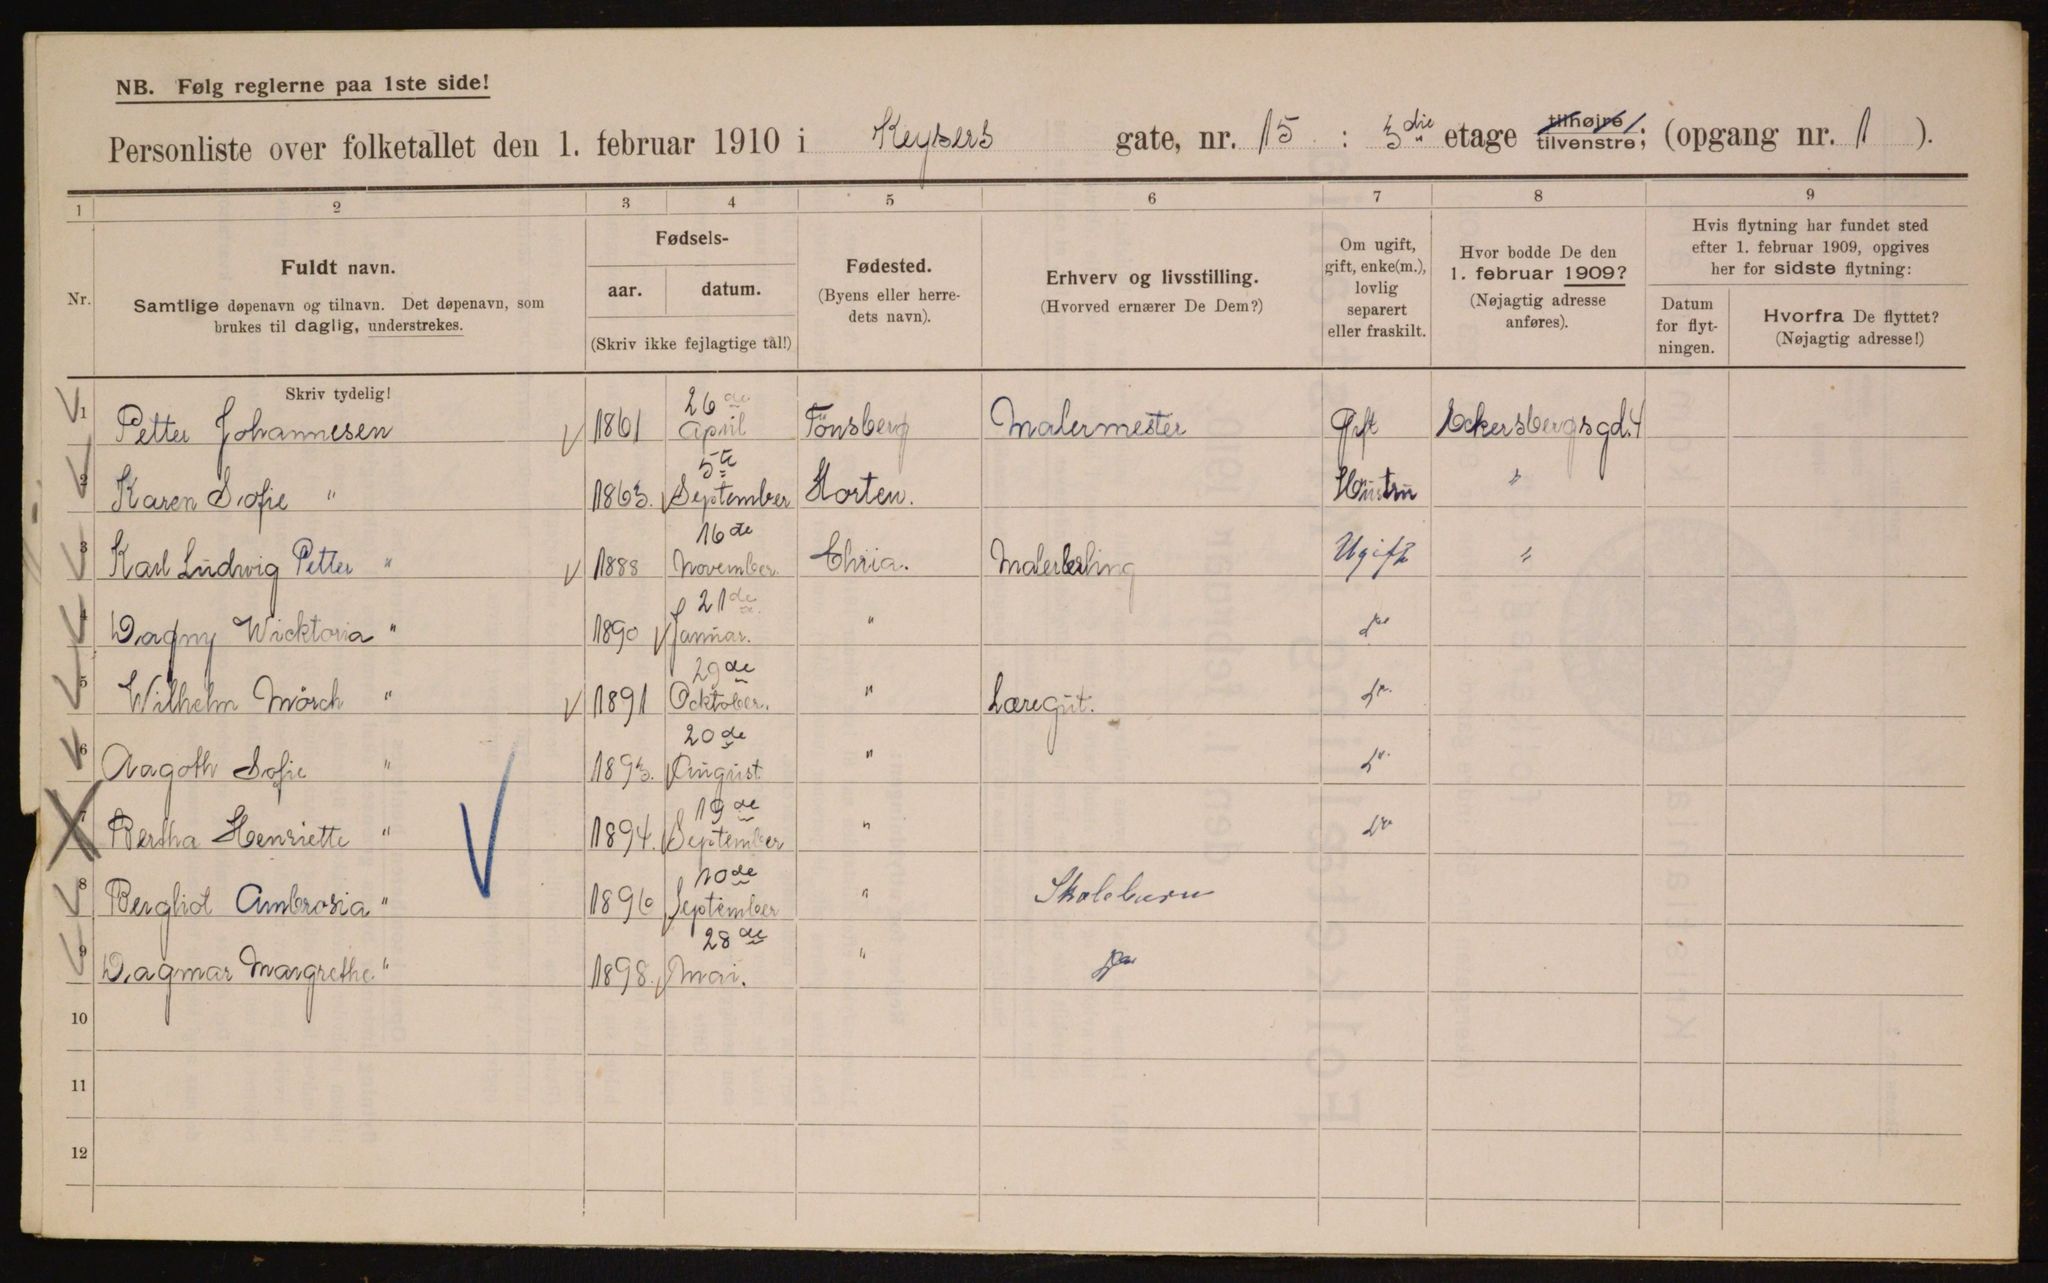 NB. Følg reglerne paa 1ste side!
Personliste over folketallet den 1. februar 1910 i Keysers gate, nr. 15 : 3die etage tilhøjre tilvenstre; (opgang nr. 1 ).
1 2 3 4 5 6 7 8 9
Nr.
Fuldt navn.
Samtlige døpenavn og tilnavn. Det døpenavn, som
brukes til daglig, understrekes.
Fødsels-
aar. datum.
(Skriv ikke fejlagtige tal!)
Fødested.
(Byens eller herre-
dets navn).
Erhverv og livsstilling.
(Hvorved ernærer De Dem?)
Om ugift,
gift, enke(m.),
lovlig
separert
eller fraskilt.
Hvor bodde De den
1. februar 1909?
(Nøjagtig adresse
anføres).
Hvis flytning har fundet sted
efter 1. februar 1909, opgives
her for sidste flytning:
Datum
for flyt-
ningen.
Hvorfra De flyttet?
(Nøjagtig adresse!)
Skriv tydelig!
1 Petter Johannesen 1861 26de April Tönsberg Malermester Gift Eckersbergsgd. 4
2 Karen Sofie " 1863. 5te September Horten. Hüstrü "
3 Karl Ludwig Petter " 1888 16de November. Chria. Malerlerling Ugift "
4 Dagny Wicktoria " 1890 21de Januar. " do
5 Wilhelm Mörch " 1891 29de Ocktober. " Læregüt. do
6 Aagoth Sofie " 1893. 20de August " do
7 Bertha Henriette " 1894. 19de September " do
8 Bergliot Ambrosia " 1896 10de September " Skolebarn
9 Dagmar Margrethe " 1898. 28de Mai. " do
10
11
12